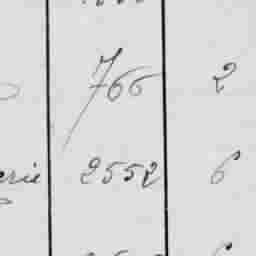 766 2
erie 2552 6